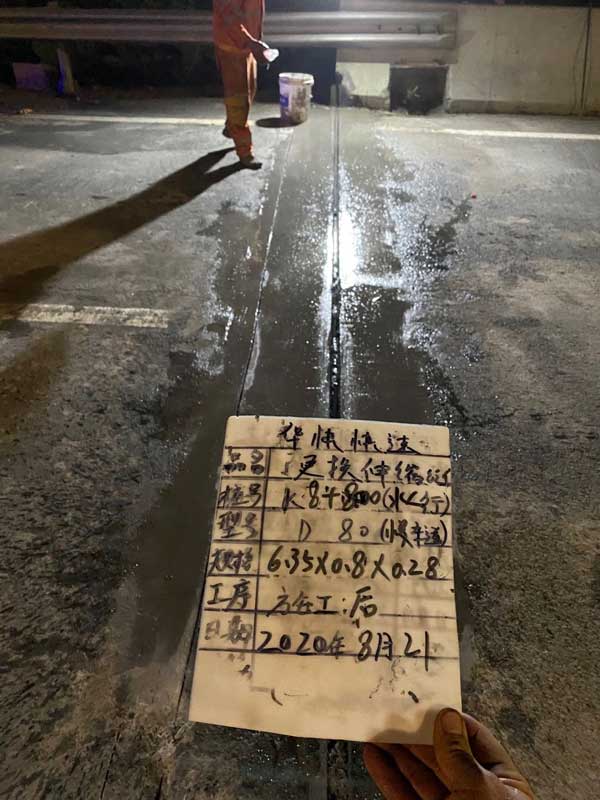 华快快速
品名 更换伸缩缝
桩号 K8+800(北行)
型号 D 80(慢车道)
规格 6.35X0.8X0.28
工序 施工:后
日期 2020年8月21